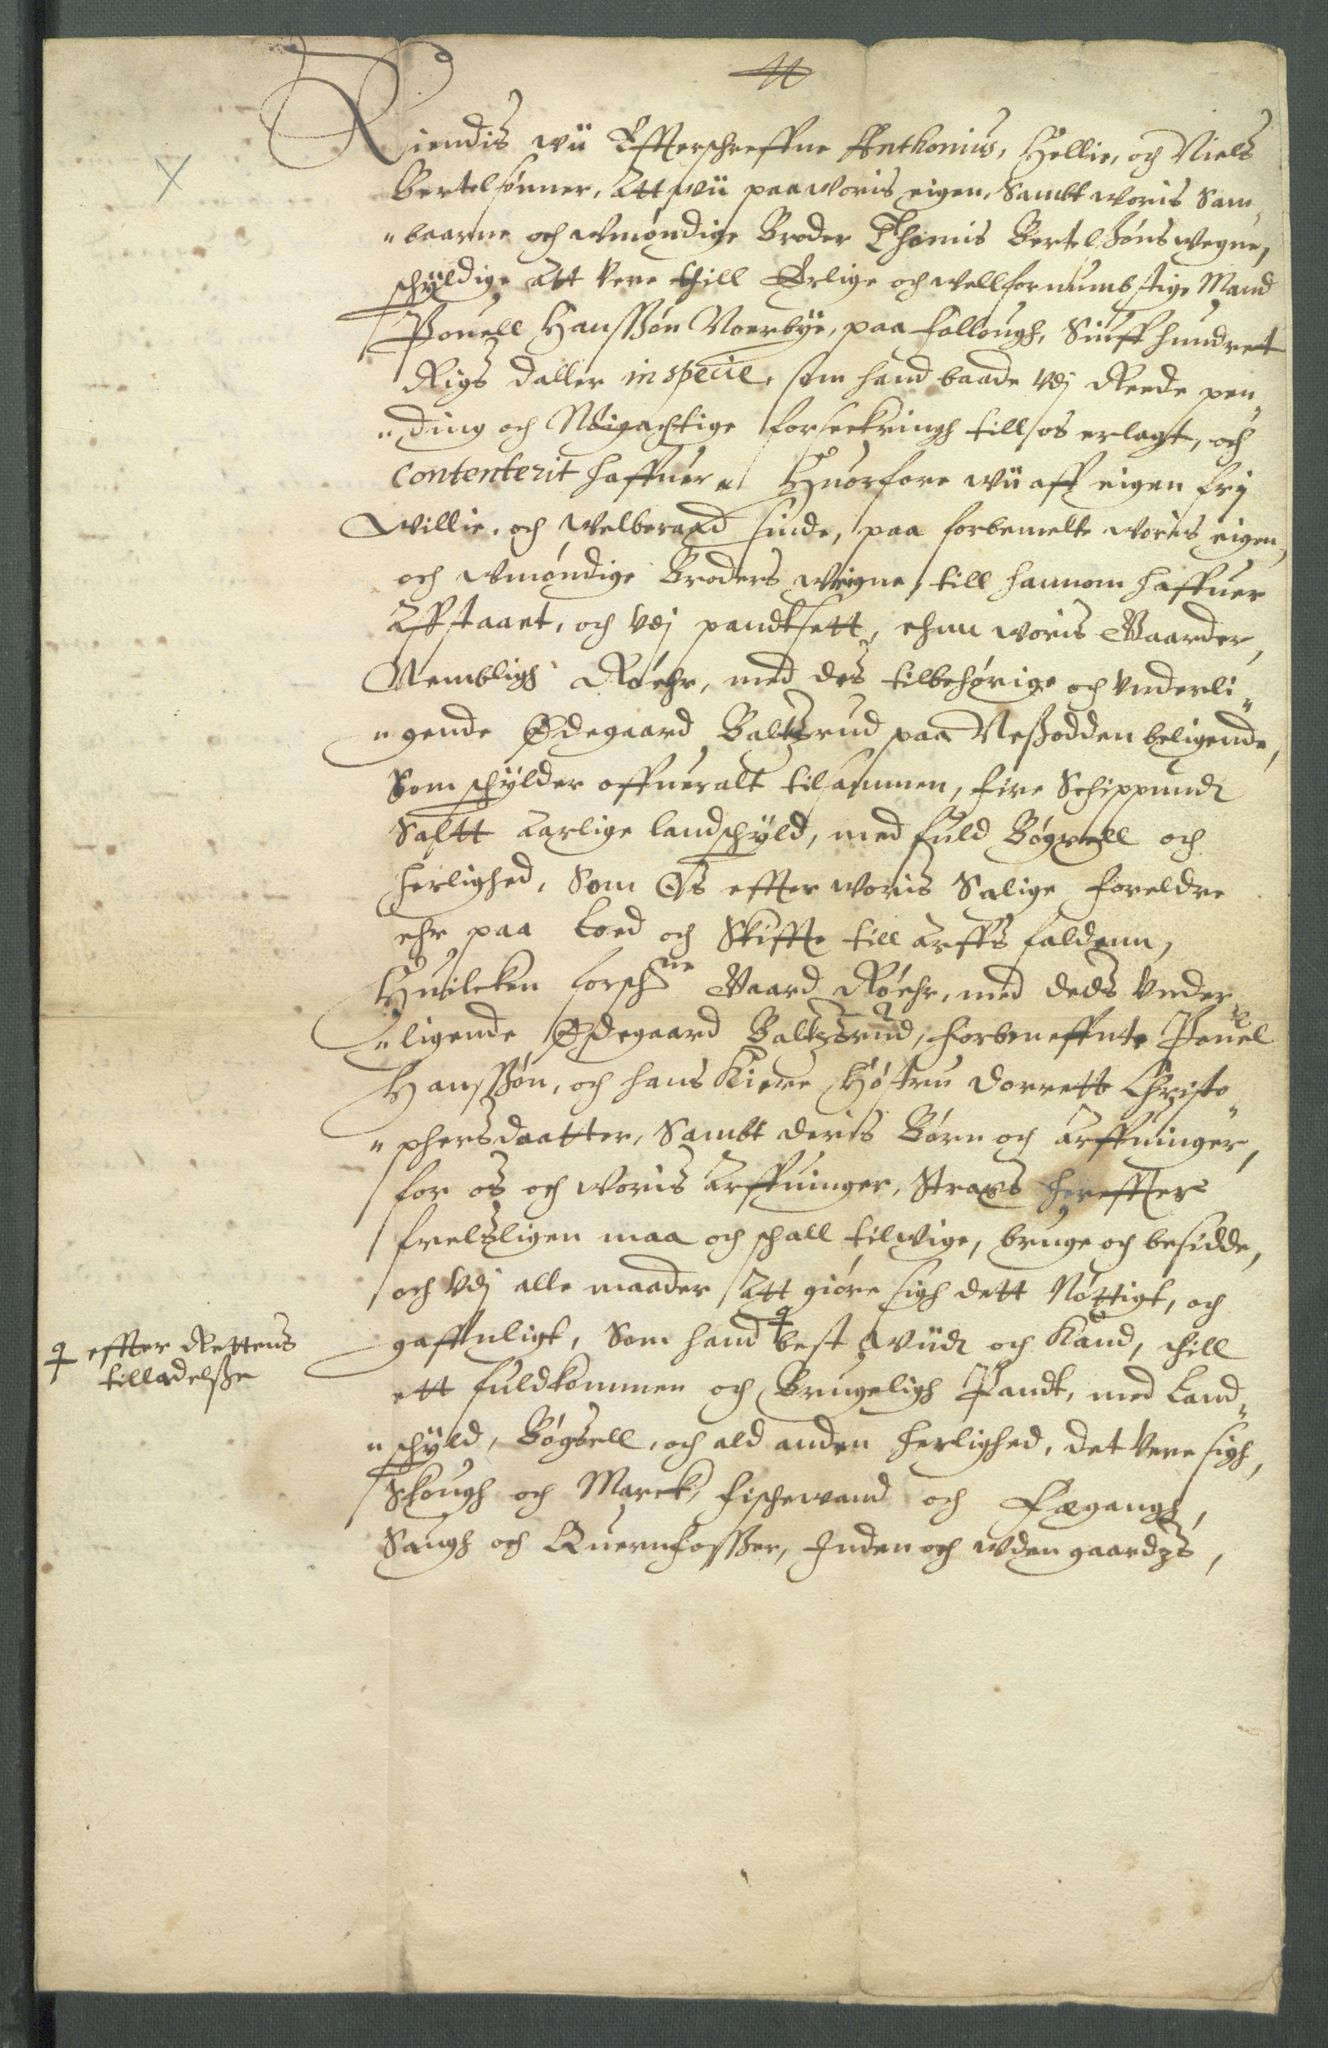 Kiendis wii Effterschreffne Anthonius, Hellie, och Niels
Bertelsønner, Att wii paa woris eigen, Sambt woris Sam¨
¨baarne och wmøndige Broder Thomis Bertelsøns wegne,
schyldige Att were thill Erlige och wellfornumbstige Mand
Pouell Hanssøn Noerbye, paa follough, Siuff hundret
Rigs daller in specie, som hand baade vdj Reede pen¨
¨ding och Nøigachtige forseekringh till os erlagt, och
contenterit haffuer. Huorfore wii aff eigen frj
willie, och welberaad sinde, paa forbemelte woris eigen,
och wmøndige Broders wegne, till hannom haffuer
Affstaaet, och vdj pandtsett, ehnn woris Gaarder,
Nembligh Røehr, med des tilbehørige och vnderli¨
¨gende Ødegaard Baltzrud paa Neßodden beligende,
Som schylder offueralt tilsammen, fire Schippund
Saltt aarlige landschyld, med fuld Bøgxell och
herlighed, Som Os effter woris Salige foreldre
ehr paa Loed och Skiffte till arffs faldenn,
Huilcken forschne Gaard Røehr, med deds vnder¨
¨ligende Ødegaard Baltzsrud, forbeneffnte Pouel
Hanssøn, och hans Kiere Høstru Dorrette Christo¨
¨phersdaatter, Sambt deris Børn och Arffuinger,
for os och woris Arffuinger, Straxs hereffter
frelsligen maa och schall tilwige, bruge och besidde,
och vdj alle maader Att giøre sigh dett Nøttigt, och
gaffnligt, Som hand best wiid och Kand, thill
♀ effter Rettens
tilladelsße
ett fuldkommen och Brugeligh Pandt, med Land¨
¨schyld, Bøgsell, och ald anden herlighed, det vere sigh,
Skough och Marck, fischewand och Fægangh,
Saugh och Quernfosser, Inden och wden gaardzs,